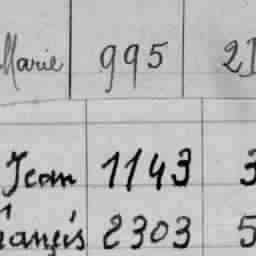 Marie 995 21
Jean 1143 3
ançis 2303 5